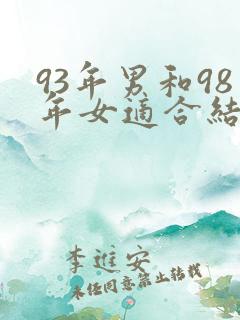 93年男和98
年女適合結
李進安
未經同意禁止轉載